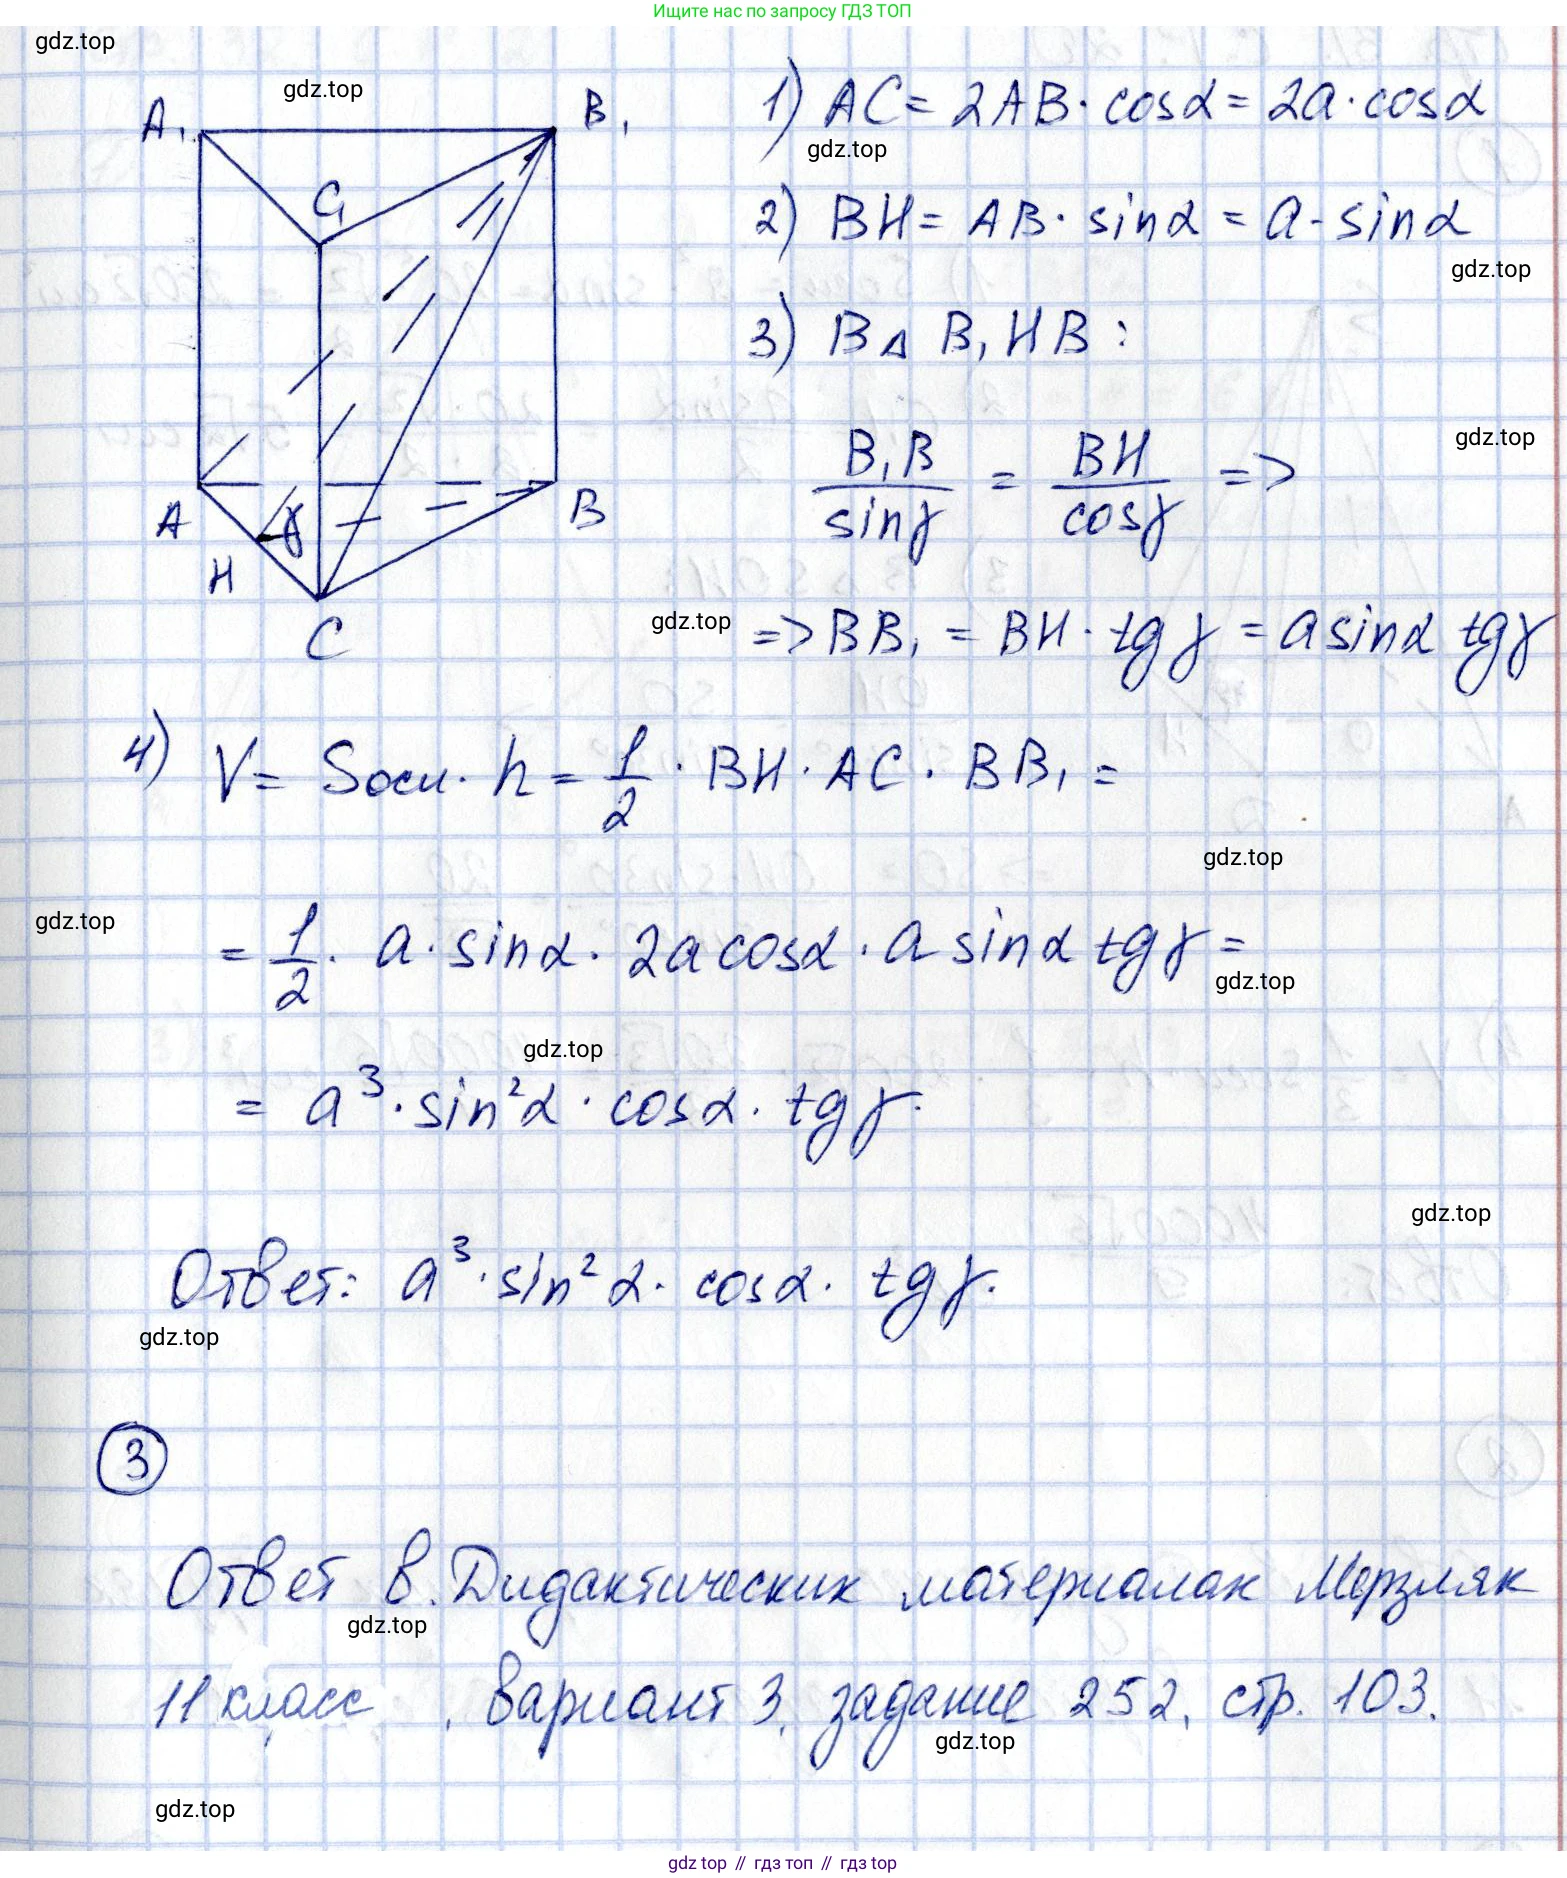 Ищите нас по запросу ГДЗ ТОП
gdz.top
gdz.top
A₁ B₁ C₁
1) AC = 2AB · cosα = 2a · cosα
gdz.top
2) BH = AB · sinα = a · sinα
gdz.top
3) В △ B₁HB :
B₁B/sinγ = BH/cosγ =>
gdz.top
A H γ C B
gdz.top
=> BB₁ = BH · tgγ = a sinα tgγ
4) V = Sосн · h = 1/2 · BH · AC · BB₁ =
gdz.top
gdz.top
= 1/2 · a · sinα · 2a cosα · a sinα tgγ =
gdz.top
gdz.top
= a³ · sin²α · cosα · tgγ.
gdz.top
Ответ: a³ · sin²α · cosα · tgγ.
gdz.top
3
Ответ в. Дидактических материалах Мерзляк
gdz.top
11 класс , вариант 3, задание 252, стр. 103.
gdz.top
gdz.top
gdz top // гдз топ // гдз top